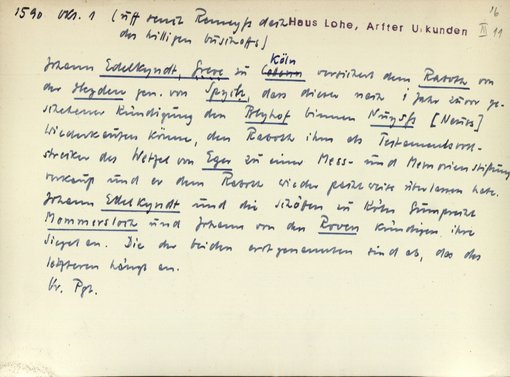 1590 Okt. 1 (uff senct Remeyss dach
des hilligen busschoffs)
Haus Lohe, Arfter Urkunden
16
III 11
Johann Edelkyndt, Greve zu Köln versichert dem Raboth von
der Heyden gen. von Spyitz, dass dieser nach 1 Jahr zuvor ge-
schehener Kündigung den Bhof binnen Nuyss [Neuss]
wiederkaufen könne, den Raboth ihm als Testamentsvoll-
strecker des Wetzel von Eger zu einer Mess- und Memorienstiftung
verkauft und er dem Raboth wieder pachtweise überlassen habe.
Johann Edelkyndt und die Schöffen zu Köln Gumprecht
Mommersloch und Johann von den Roven kündigen ihre
Siegel an. Die der beiden erstgenannten sind ab, das des
letzteren hängt an.
Or. Pgt.